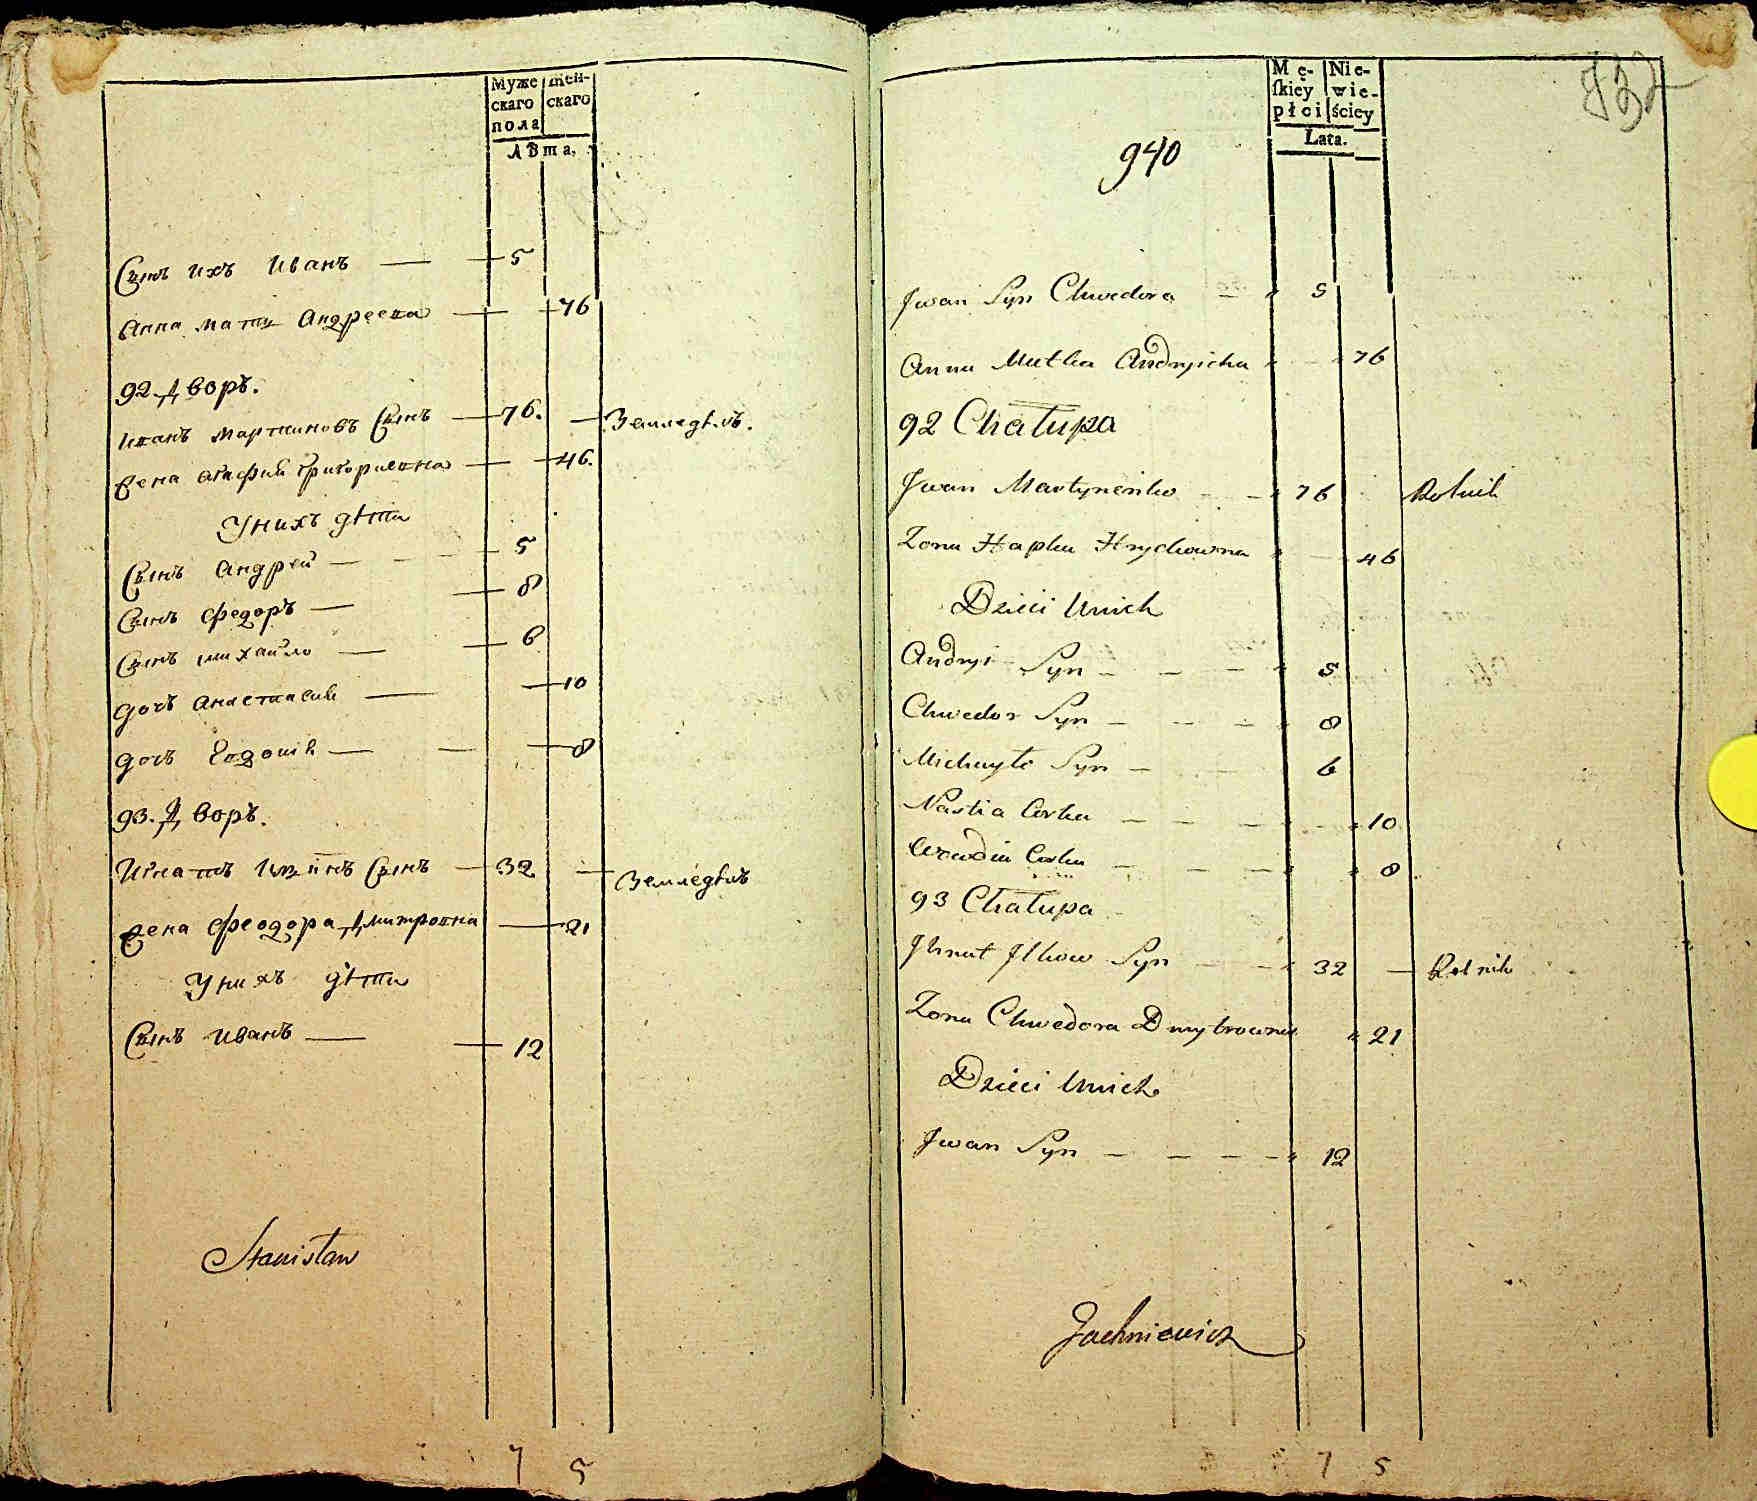 Муже
скаго
пола
жен-
скаго
Лѣта.
Сынъ ихъ Иванъ — 5
Анна мать Андреева — 76
92 Дворъ.
Иванъ Мартиновъ Сынъ — 76. — Земледѣлъ.
Жена Агафия Григориевна — 46.
У нихъ дѣти
Сынъ Андрей — 5
Сынъ Федоръ — 8
Сынъ Михайло — 6
дочъ Анастасия — 10
дочъ Евдокия — 8
93. Дворъ.
Игнатъ Сынъ — 32 — Земледѣлъ
Жена Феодора Дмитровна — 21
У нихъ дѣти
Сынъ Иванъ — 12
Stanisław
7 5
Mę-
skiey
płci
Nie-
wie-
ściey
Lata.
940
Jwan Syn Chwedora — 5
Anna Matka Andryicha 76
92 Chałupa
Jwan Martynenko — 76 Rolnik
Zona Hapka Hrychowna — 46
Dzieci Unich
Andryi Syn — 5
Chwedor Syn — 8
Michayło Syn — 6
Nastia Corka — 10
Corka — 8
93 Chałupa
Jhnat Jlkow Syn — 32 — Rolnik
Zona Chwedora Dmytrowna 21
Dzieci Unich
Jwan Syn — 12
Jachniewicz
7 5